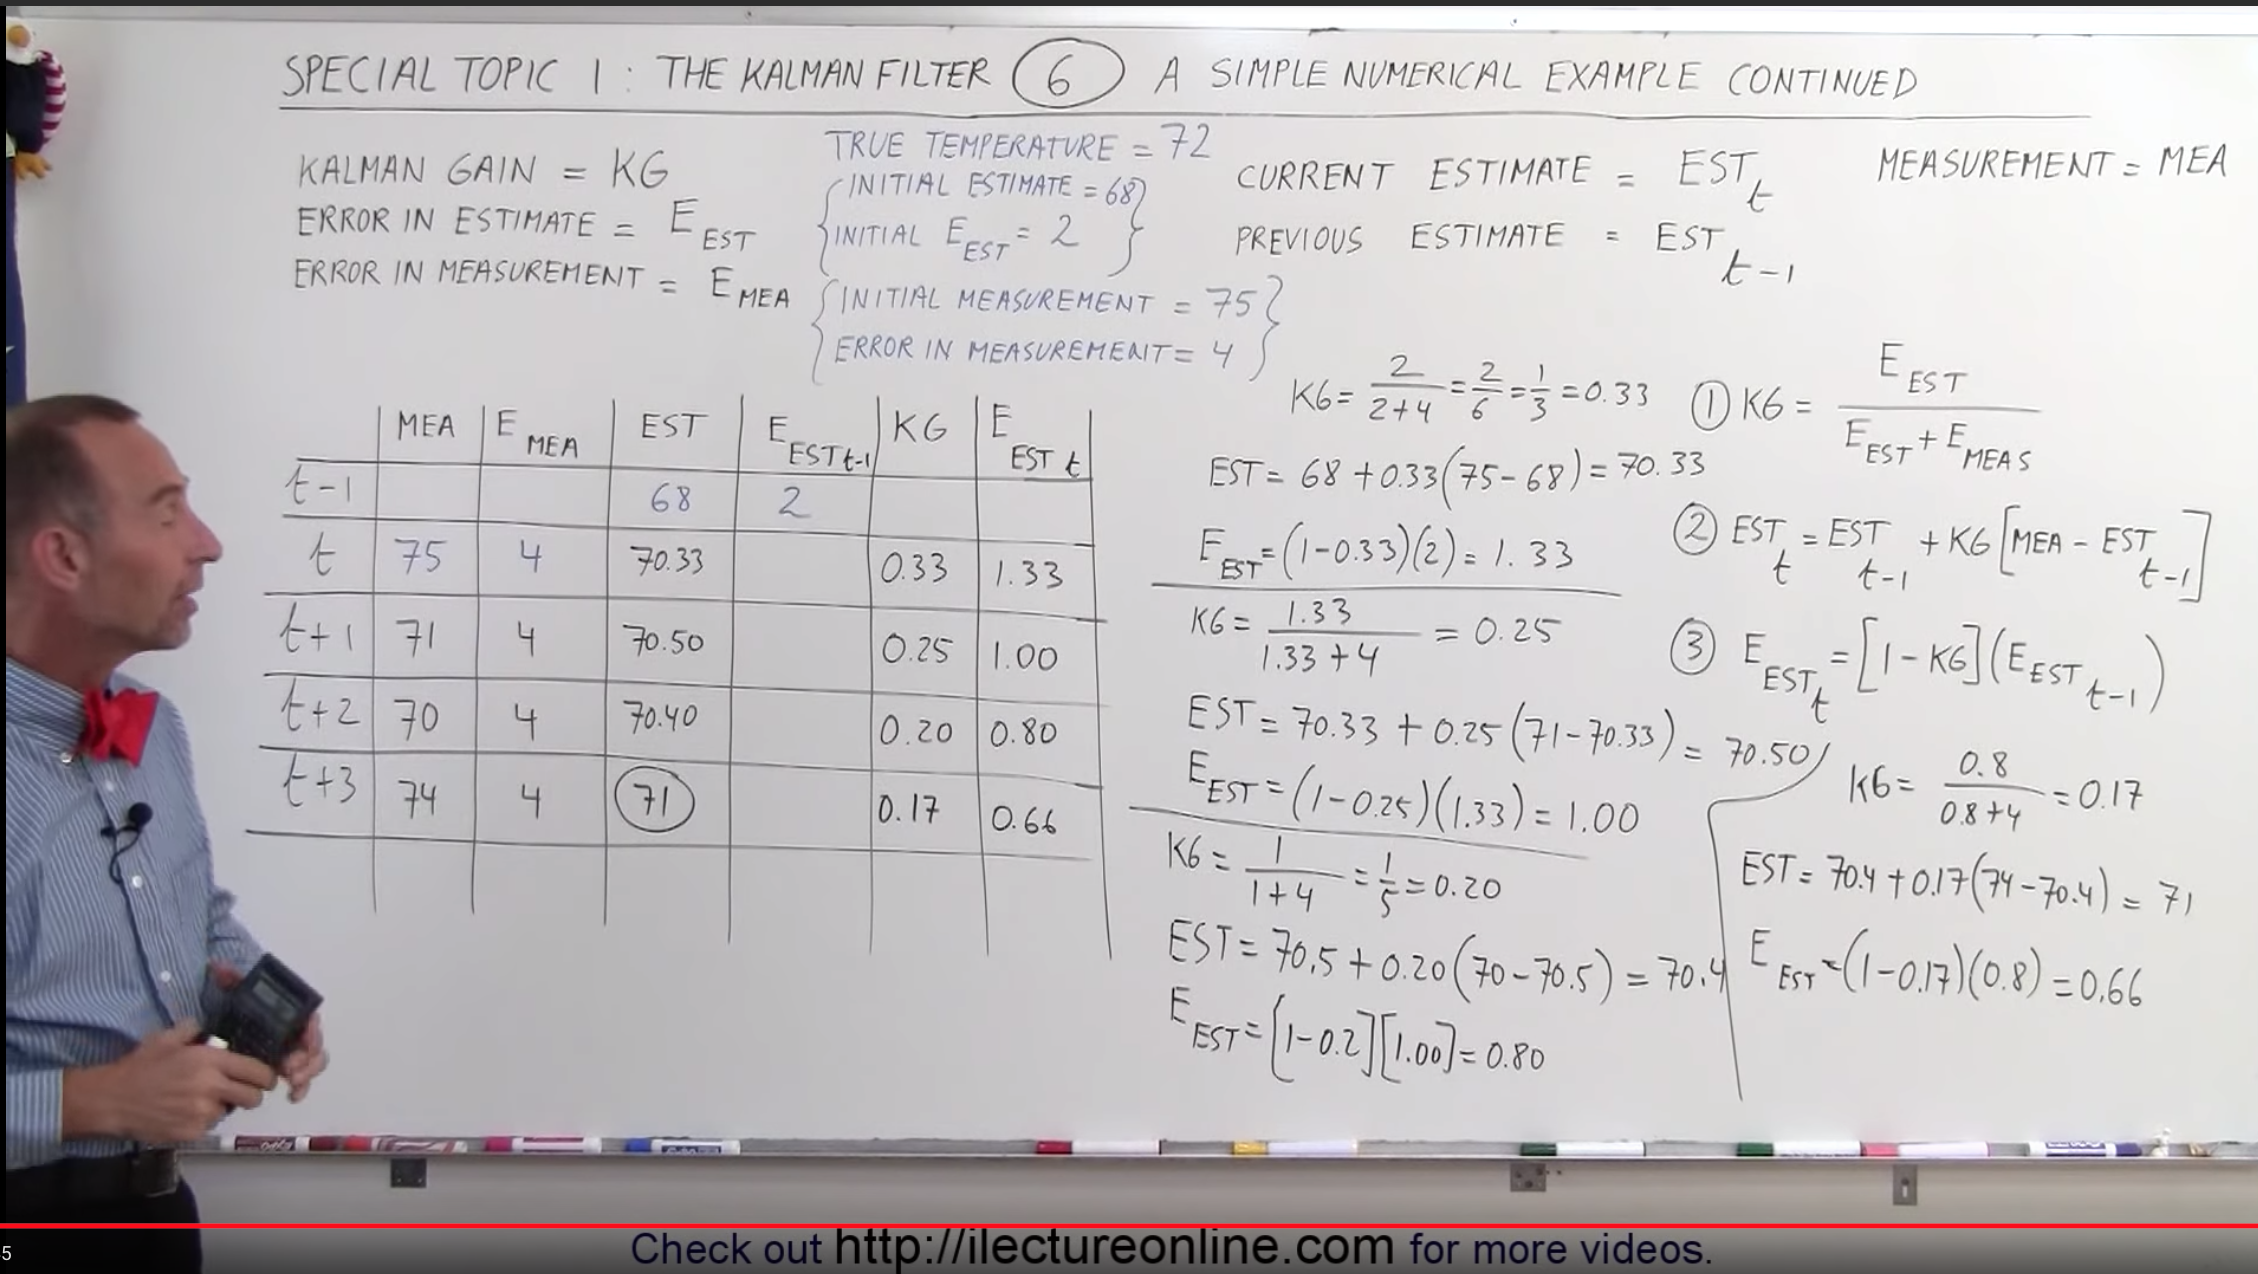 SPECIAL TOPIC 1: THE KALMAN FILTER 6 A SIMPLE NUMERICAL EXAMPLE CONTINUED
KALMAN GAIN = KG
ERROR IN ESTIMATE = E EST
ERROR IN MEASUREMENT = E MEA
TRUE TEMPERATURE = 72
{INITIAL ESTIMATE = 68
INITIAL E EST = 2}
{INITIAL MEASUREMENT = 75
ERROR IN MEASUREMENT = 4}
CURRENT ESTIMATE = EST t
PREVIOUS ESTIMATE = EST t-1
MEASUREMENT = MEA
MEA E MEA EST E EST t-1 KG E EST t
t-1 68 2
t 75 4 70.33 0.33 1.33
t+1 71 4 70.50 0.25 1.00
t+2 70 4 70.40 0.20 0.80
t+3 74 4 71 0.17 0.66
KG = 2/(2+4) = 2/6 = 1/3 = 0.33
EST = 68 + 0.33(75-68) = 70.33
E EST = (1-0.33)(2) = 1.33
KG = 1.33/(1.33+4) = 0.25
EST = 70.33 + 0.25(71-70.33) = 70.50
E EST = (1-0.25)(1.33) = 1.00
KG = 1/(1+4) = 1/5 = 0.20
EST = 70.5 + 0.20(70-70.5) = 70.4
E EST = [1-0.2][1.00] = 0.80
① KG = E EST/(E EST + E MEAS)
② EST t = EST t-1 + KG[MEA - EST t-1]
③ E EST t = [1-KG](E EST t-1)
KG = 0.8/(0.8+4) = 0.17
EST = 70.4 + 0.17(74-70.4) = 71
E EST = (1-0.17)(0.8) = 0.66
5
Check out http://ilectureonline.com for more videos.